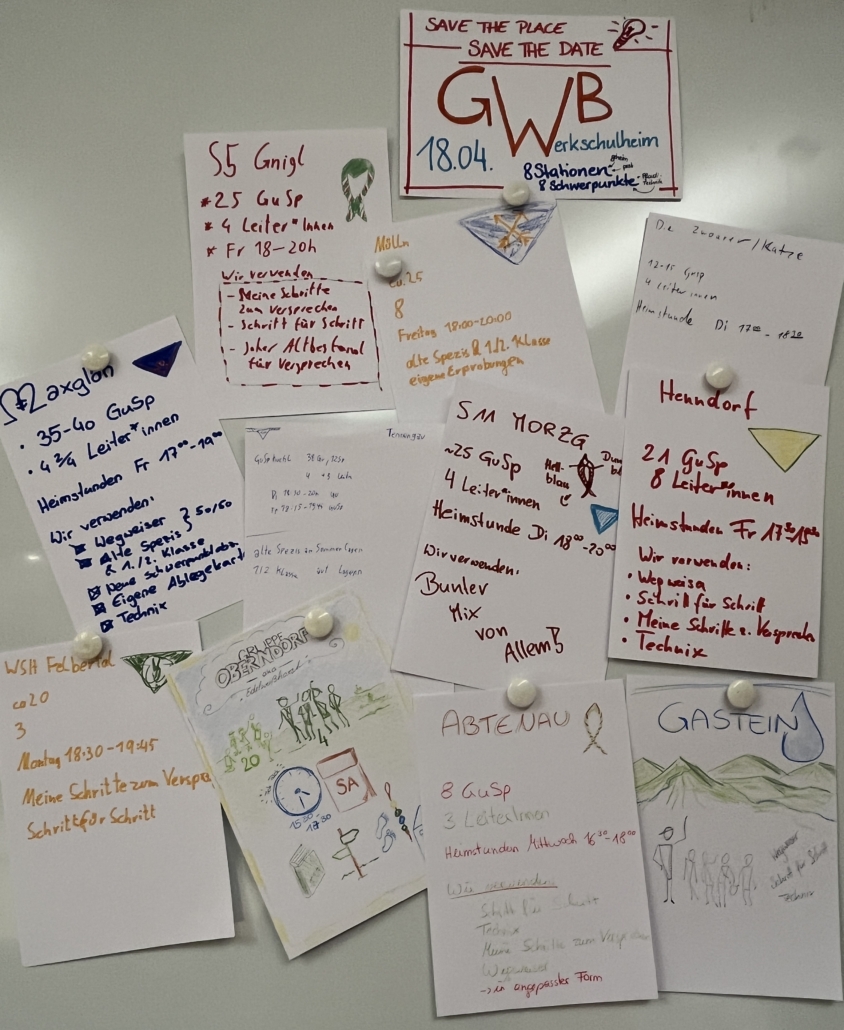 SAVE THE PLACE
SAVE THE DATE
GWB
18.04. Werkschulheim
8 Stationen
8 Schwerpunkte
S5 Gnigl
* 25 GuSp
* 4 Leiter*innen
* Fr 18-20h
Wir verwenden
- Meine Schritte
zum Versprechen
- Schritt für Schritt
- Joker Altbestand
für Versprechen
Mölln
ca. 25
8
Freitag 18:00-20:00
alte Spezis & 1./2. Klasse
eigene Erprobungen
/Katze
12-15 GuSp
4 Leiter innen
Heimstunde Di 17⁰⁰ - 18³⁰
Maxglan
• 35-40 GuSp
• 4 3/4 Leiter*innen
Heimstunden Fr 17⁰⁰-19⁰⁰
Wir verwenden:
Wegweiser
Alte Spezis } 50/50
& 1./2. Klasse
Neue Schwerpunktabz.
Eigene Ablegekart
Technix
Tennengau
GuSp Kuchl
alte Spezis in Sommerlagern
1/2 Klasse auf Lagern
S11 MORZG
~25 GuSp
4 Leiter*innen
Hell-
blau
Heimstunde Di 18⁰⁰-20⁰⁰
Wir verwenden:
Bunter
Mix
von
Allem!
Henndorf
21 GuSp
8 Leiter*innen
Heimstunden Fr 17³⁰-19³⁰
Wir verwenden:
• Wegweisa
• Schritt für Schritt
• Meine Schritte z. Versprechen
• Technix
WSH Felbertal
ca 20
3
Montag 18:30-19:45
Meine Schritte zum Verspre
Schritt für Schritt
GRUPPE
OBERNDORF
20
4
SA
15:30-
17:30
ABTENAU
8 GuSp
3 LeiterInnen
Heimstunden Mittwoch 16³⁰-18⁰⁰
Wir verwenden:
Schritt für Schritt
Technix
Meine Schritte zum Versprechen
Wegweiser
-> in angepasster Form
GASTEIN
Wegweiser
Schritt für Schritt
Technix